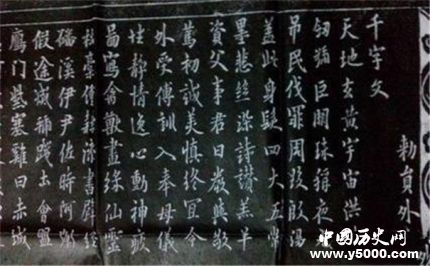 勅員外
千字文
天地玄黃宇宙洪
劒號巨闕珠稱夜
吊民伐罪周發殷湯
蓋此身髮四大五常
墨悲絲染詩讚羔羊
資父事君曰嚴與敬
篤初誠美慎終宜令
外受傅訓入奉母儀
性靜情逸心動神疲
圖寫禽獸畫綵仙靈
杜稾鍾隸漆書壁經
磻溪伊尹佐時阿衡
假途滅虢踐土會盟
鴈門紫塞雞田赤城
中国历史网
www.y5000.com